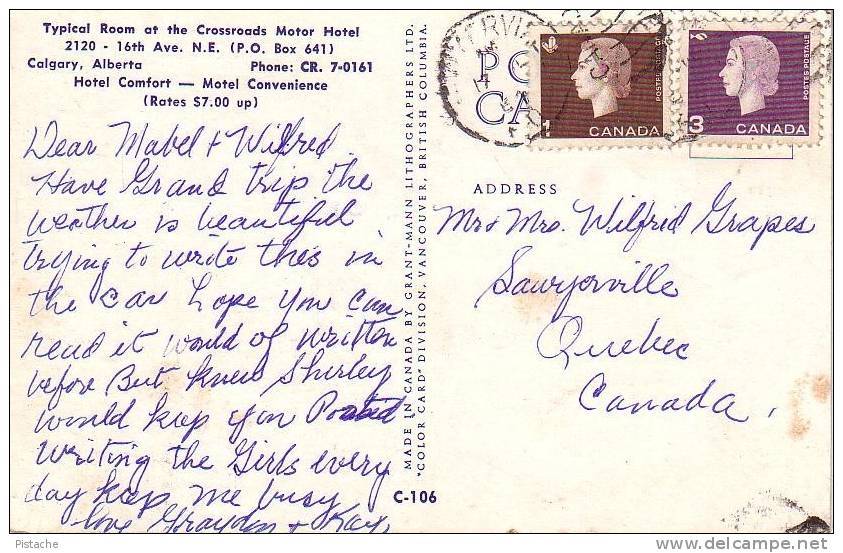 Typical Room at the Crossroads Motor Hotel
2120 - 16th Ave. N.E. (P.O. Box 641)
Calgary, Alberta Phone: CR. 7-0161
Hotel Comfort — Motel Convenience
(Rates $7.00 up)
Dear Mabel + Wilfred
Have Grand trip the
weather is beautiful
trying to write this in
the car hope you can
read it would of written
before But knew Shirley
would kep you Posted
writing the Girls every
day keep me busy
love Graydon + Kay,
MADE IN CANADA BY GRANT-MANN LITHOGRAPHERS LTD.
"COLOR CARD" DIVISION, VANCOUVER, BRITISH COLUMBIA.
C-106
PO
CA
1 CANADA
POSTES POSTAGE
3 CANADA
ADDRESS
Mr & Mrs. Wilfrid Grapes
Sawyerville
Quebec
Canada,
Pistache
www.delcampe.net